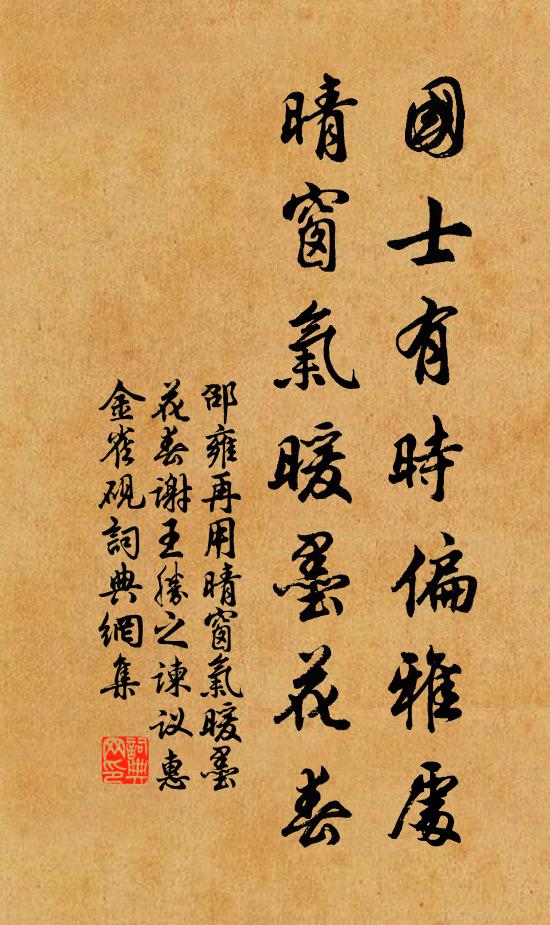 國士有時偏雅處
晴窗氣暖墨花春
邵雍再用晴窗氣暖墨
花春謝王勝之諫议惠
金雀硯詞典網集
詞典网印